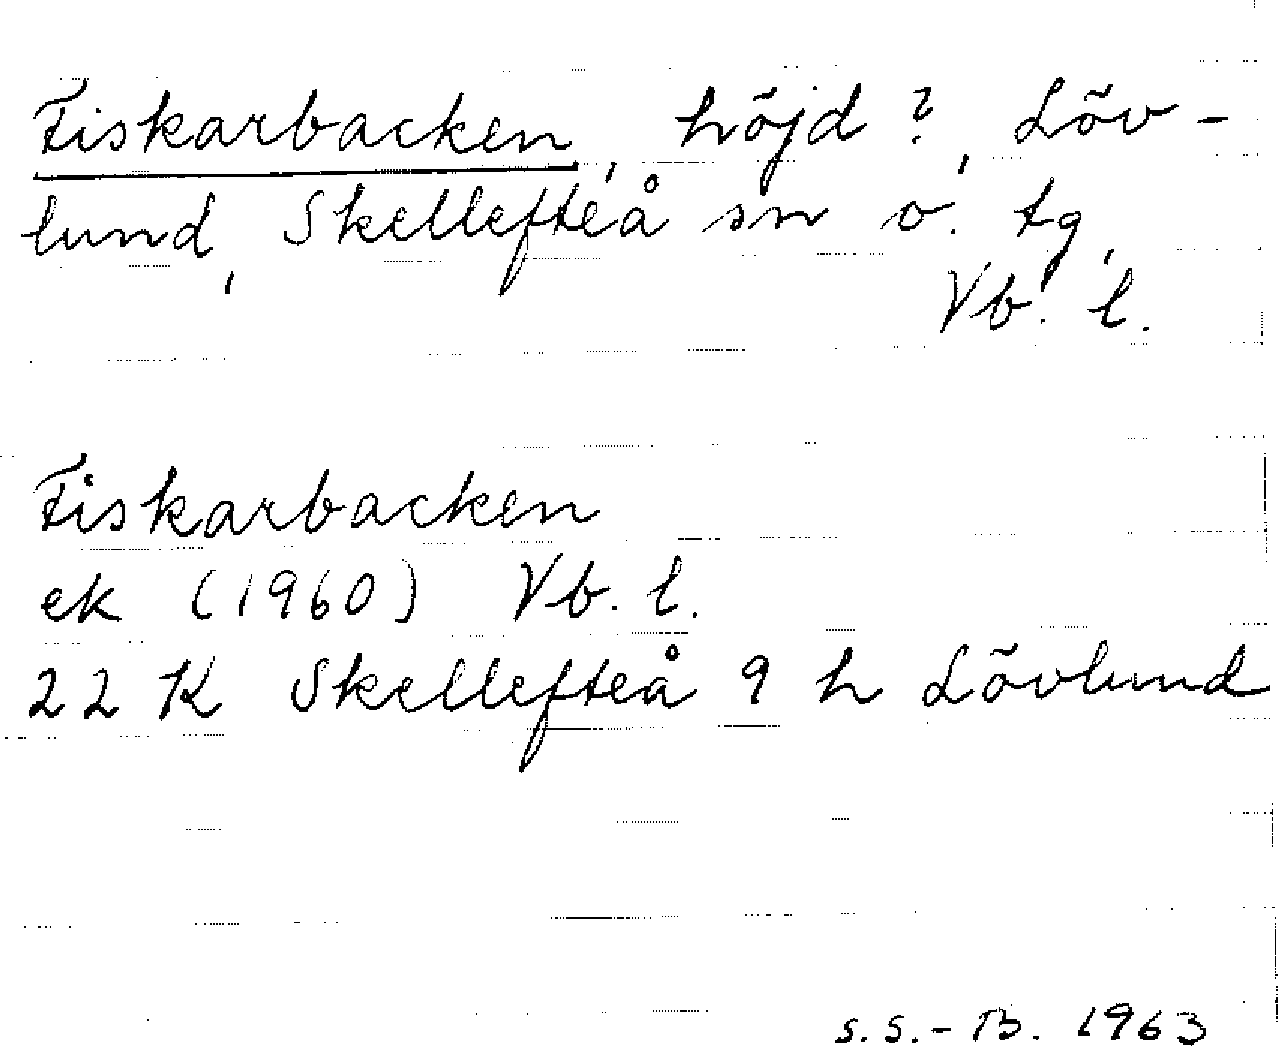 Fiskarbacken, höjd?, Löv-
lund, Skellefteå sn o. tg,
Vb. l.
Fiskarbacken
ek (1960) Vb. l.
22 K Skellefteå 9 h Lövlund
S.S.-B. 1963